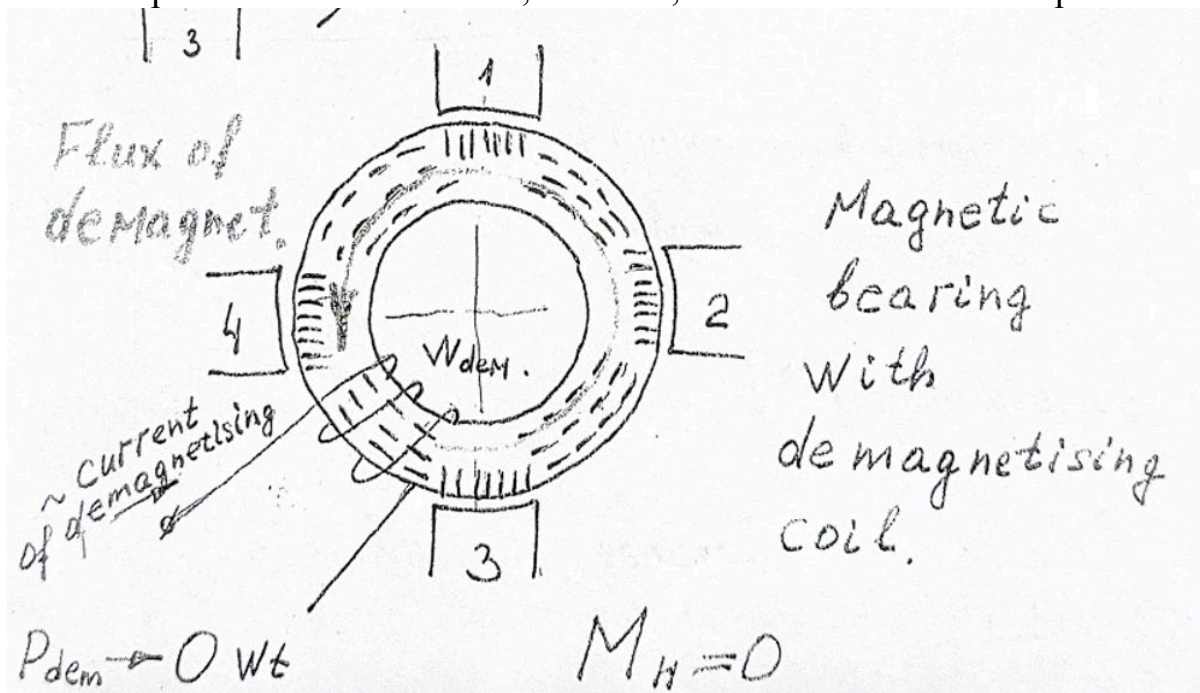 3
1
Flux of
demagnet.
Magnetic
bearing
with
demagnetising
coil.
4
2
W dem.
~ current
of demagnetising
3
Pdem → 0 Wt
MH=0